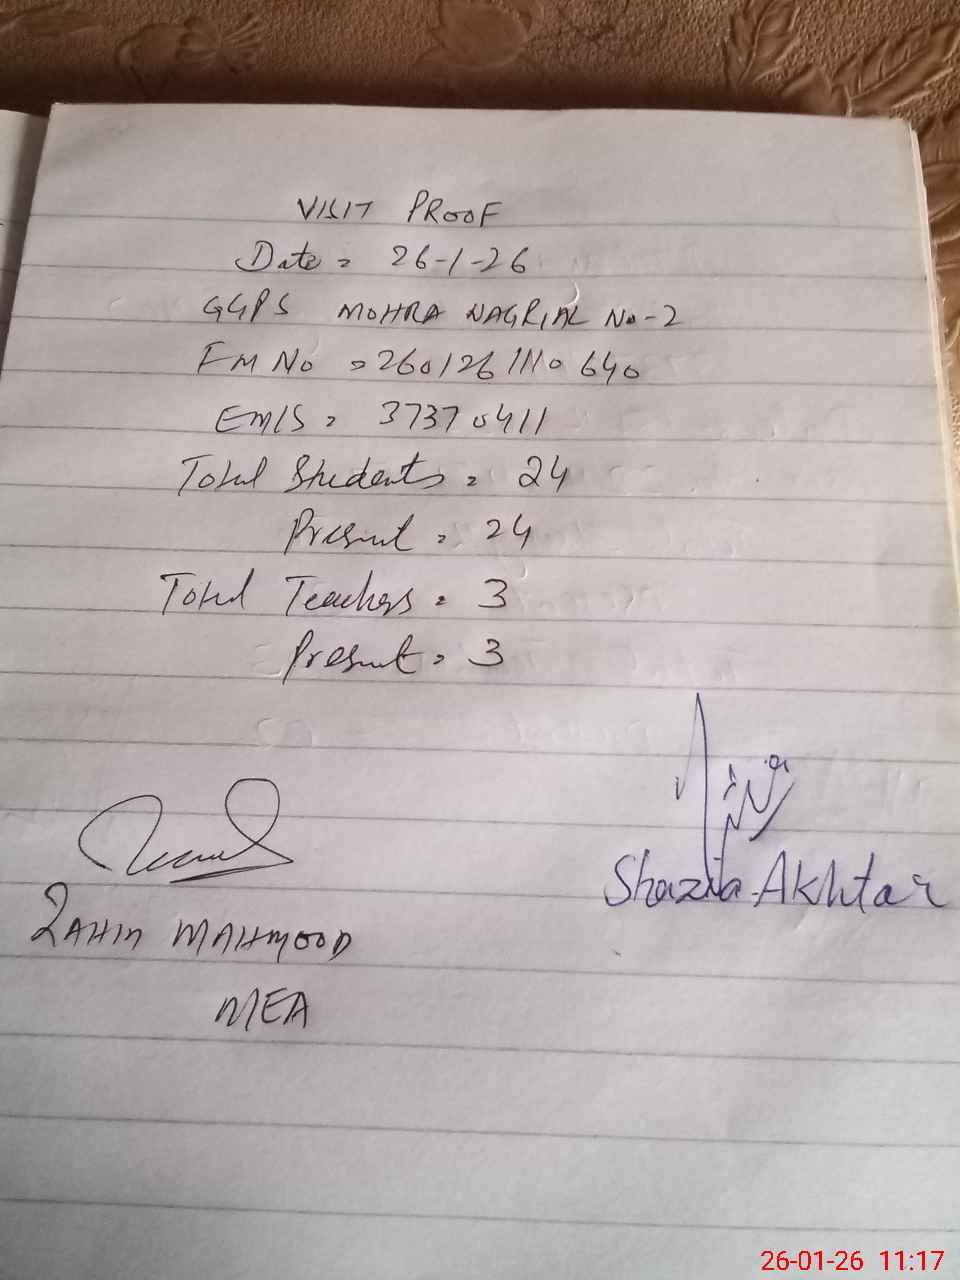 VISIT PROOF
Date = 26-1-26
GGPS MOHRA NAGRIAL No-2
FM No = 2601261110640
EMIS = 37370411
Total Students = 24
Present = 24
Total Teachers = 3
Present = 3
Shazia Akhtar
MAHMOOD
MEA
26-01-26 11:17